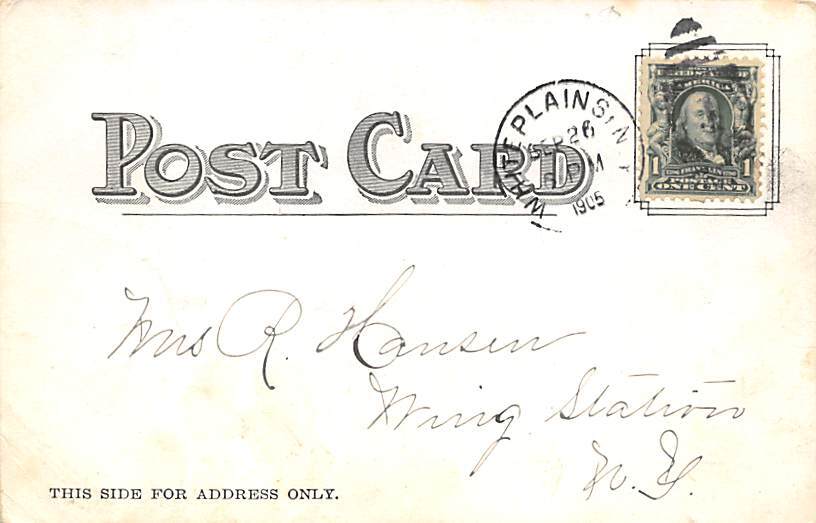 POST CARD
WHITE PLAINS, N.Y.
SEP 26
M
1905
UNITED STATES OF AMERICA
1 1
ONE CENT
Mrs R. Hansen
Wing Station
N. Y.
THIS SIDE FOR ADDRESS ONLY.